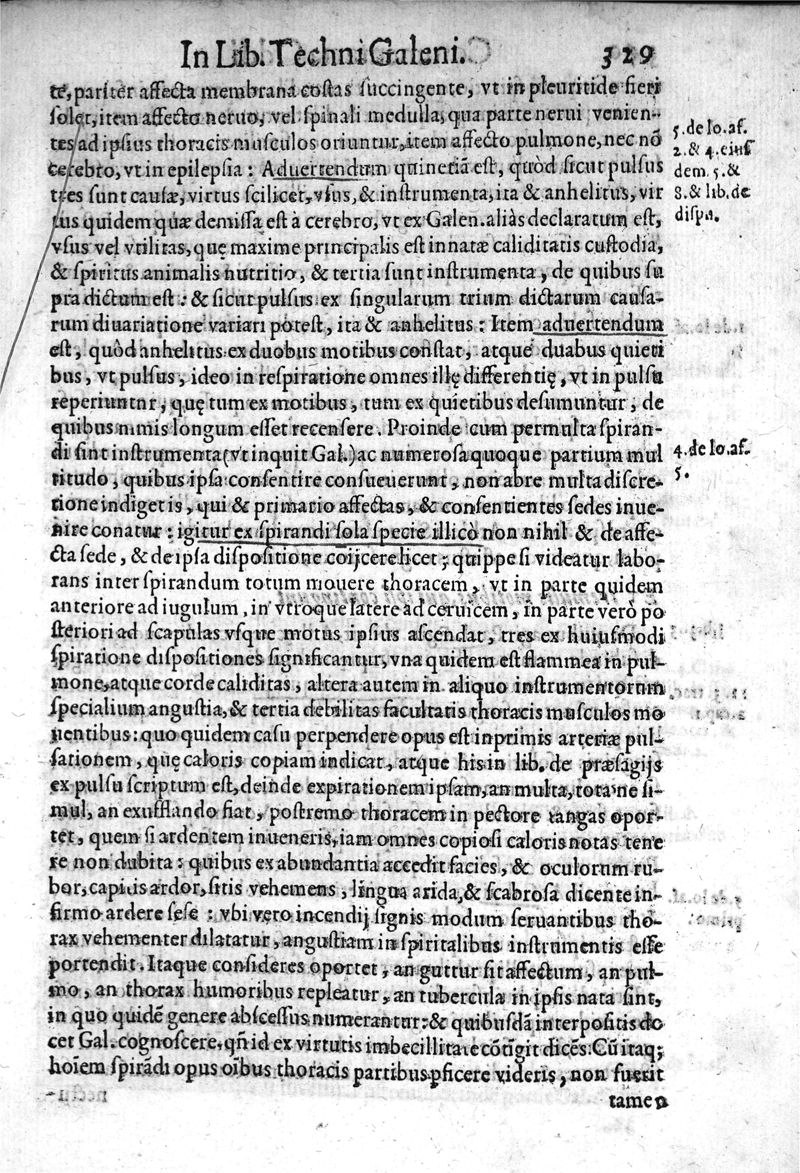 In Lib. Techni Galeni. 329
te, pariter affecta membrana costas succingente, vt in pleuritide fieri
solet, item affecto neruo, vel spinali medulla, qua parte nerui venien-
tes ad ipsius thoracis musculos oriuntur, item affecto pulmone, nec nō
cerebro, vt in epilepsia: Aduertendum quinetiā est, quòd sicut pulsus
tres sunt causæ, virtus scilicet, vsus, & instrumenta, ita & anhelitus, vir
tus quidem quæ demissa est à cerebro, vt ex Galen. aliàs declaratum est,
vsus vel vtilitas, quę maxime principalis est innatæ caliditatis custodia,
& spiritus animalis nutritio, & tertia sunt instrumenta, de quibus su
pra dictum est: & sicut pulsus ex singularum trium dictarum causa-
rum diuariatione variari potest, ita & anhelitus: Item aduertendum
est, quòd anhelitus ex duobus motibus constat, atque duabus quieti
bus, vt pulsus, ideo in respiratione omnes illę differentię, vt in pulsu
reperiuntur, quę tum ex motibus, tum ex quietibus desumuntur, de
quibus nimis longum esset recensere. Proinde cum permulta spiran-
di sint instrumenta (vt inquit Gal.) ac numerosa quoque partium mul
titudo, quibus ipsa consentire consueuerunt, non abre multa discre-
tione indiget is, qui & primario affectas, & consentientes sedes inue-
nire conatur: igitur ex spirandi sola specie illicò non nihil & de affe-
cta sede, & de ipsa dispositione coijcere licet; quippe si videatur labo-
rans inter spirandum totum mouere thoracem, vt in parte quidem
anteriore ad iugulum, in vtroque latere ad ceruicem, in parte verò po
steriori ad scapulas vsque motus ipsius ascendat, tres ex huiusmodi
spiratione dispositiones significantur, vna quidem est flammea in pul-
mone, atque corde caliditas, altera autem in aliquo instrumentorum
specialium angustia, & tertia debilitas facultatis thoracis musculos mo
uentibus: quo quidem casu perpendere opus est inprimis arteriæ pul-
sationem, quę caloris copiam indicat, atque his in lib. de præsagijs
ex pulsu scriptum est, deinde expirationem ipsam, an multa, tota'ne si-
mul, an exufflando fiat, postremo thoracem in pectore tangas opor-
tet, quem si ardentem inueneris, iam omnes copiosi caloris notas tene
re non dubita: quibus ex abundantia accedit facies, & oculorum ru-
bor, capitis ardor, sitis vehemens, lingua arida, & scabrosa dicente in-
firmo ardere sese: vbi vero incendij signis modum seruantibus tho-
rax vehementer dilatatur, angustiam in spiritalibus instrumentis esse
portendit. Itaque consideres oportet, an guttur sit affectum, an pul-
mo, an thorax humoribus repleatur, an tubercula in ipsis nata sint,
in quo quidē genere abscessus numerantur: & quibusdā interpositis do
cet Gal. cognoscere, qñ id ex virtutis imbecillitate cōtīgit dicēs: Cū itaq;
hoīem spirādi opus oībus thoracis partibus ꝑficere videris, non fuerit
tamen
5. de lo. af.
2. & 4. eius
dem. 5. &
8. & lib. de
dispn.
4. de lo. af.
5.